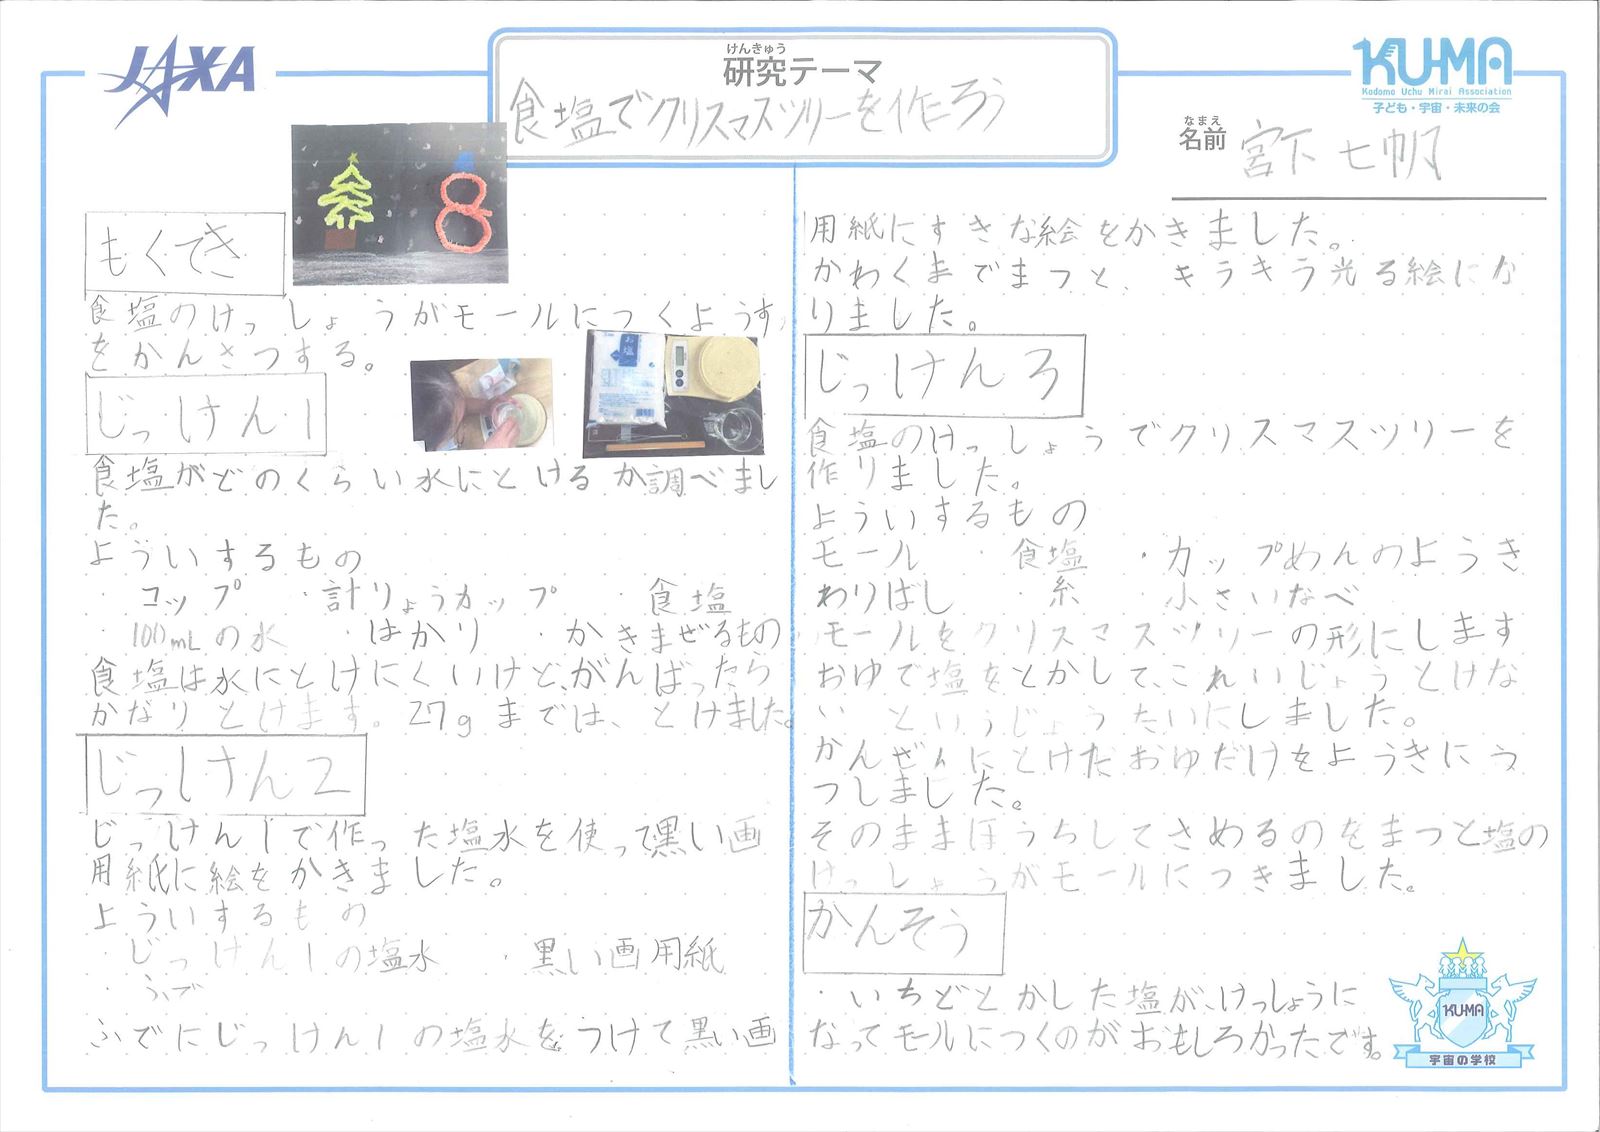 JAXA
けんきゅう
研究テーマ
食塩でクリスマスツリーを作ろう
KU-MA
Kodomo Uchu Mirai Association
子ども・宇宙・未来の会
なまえ
名前 宮下 七帆
もくてき
食塩のけっしょうがモールにつくようす
をかんさつする。
お塩
じっけん1
食塩がどのくらい水にとけるか調べまし
た。
よういするもの
・コップ ・計りょうカップ ・食塩
・100mLの水 ・はかり ・かきまぜるもの
食塩は水にとけにくいけど、がんばったら
かなりとけます。27gまでは、とけました。
じっけん2
じっけん1で作った塩水を使って黒い画
用紙に絵をかきました。
よういするもの
・じっけん1の塩水 ・黒い画用紙
・ふで
ふでにじっけん1の塩水をつけて黒い画
用紙にすきな絵をかきました。
かわくまでまつと、キラキラ光る絵にな
りました。
じっけん3
食塩のけっしょうでクリスマスツリーを
作りました。
よういするもの
モール ・食塩 ・カップめんのようき
わりばし ・糸 ・小さいなべ
モールをクリスマスツリーの形にします
おゆで塩をとかして、これいじょうとけな
い というじょうたいにしました。
かんぜんにとけたおゆだけをようきにう
つしました。
そのままほうちしてさめるのをまつと塩の
けっしょうがモールにつきました。
かんそう
・いちどとかした塩が、けっしょうに
なってモールにつくのがおもしろかったです。
KU-MA
宇宙の学校